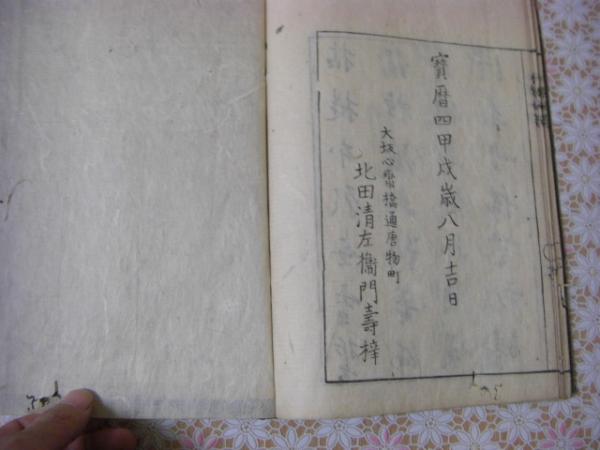 寶暦四甲戌歳八月吉日
大坂心齋橋通唐物町
北田清左衞門壽梓